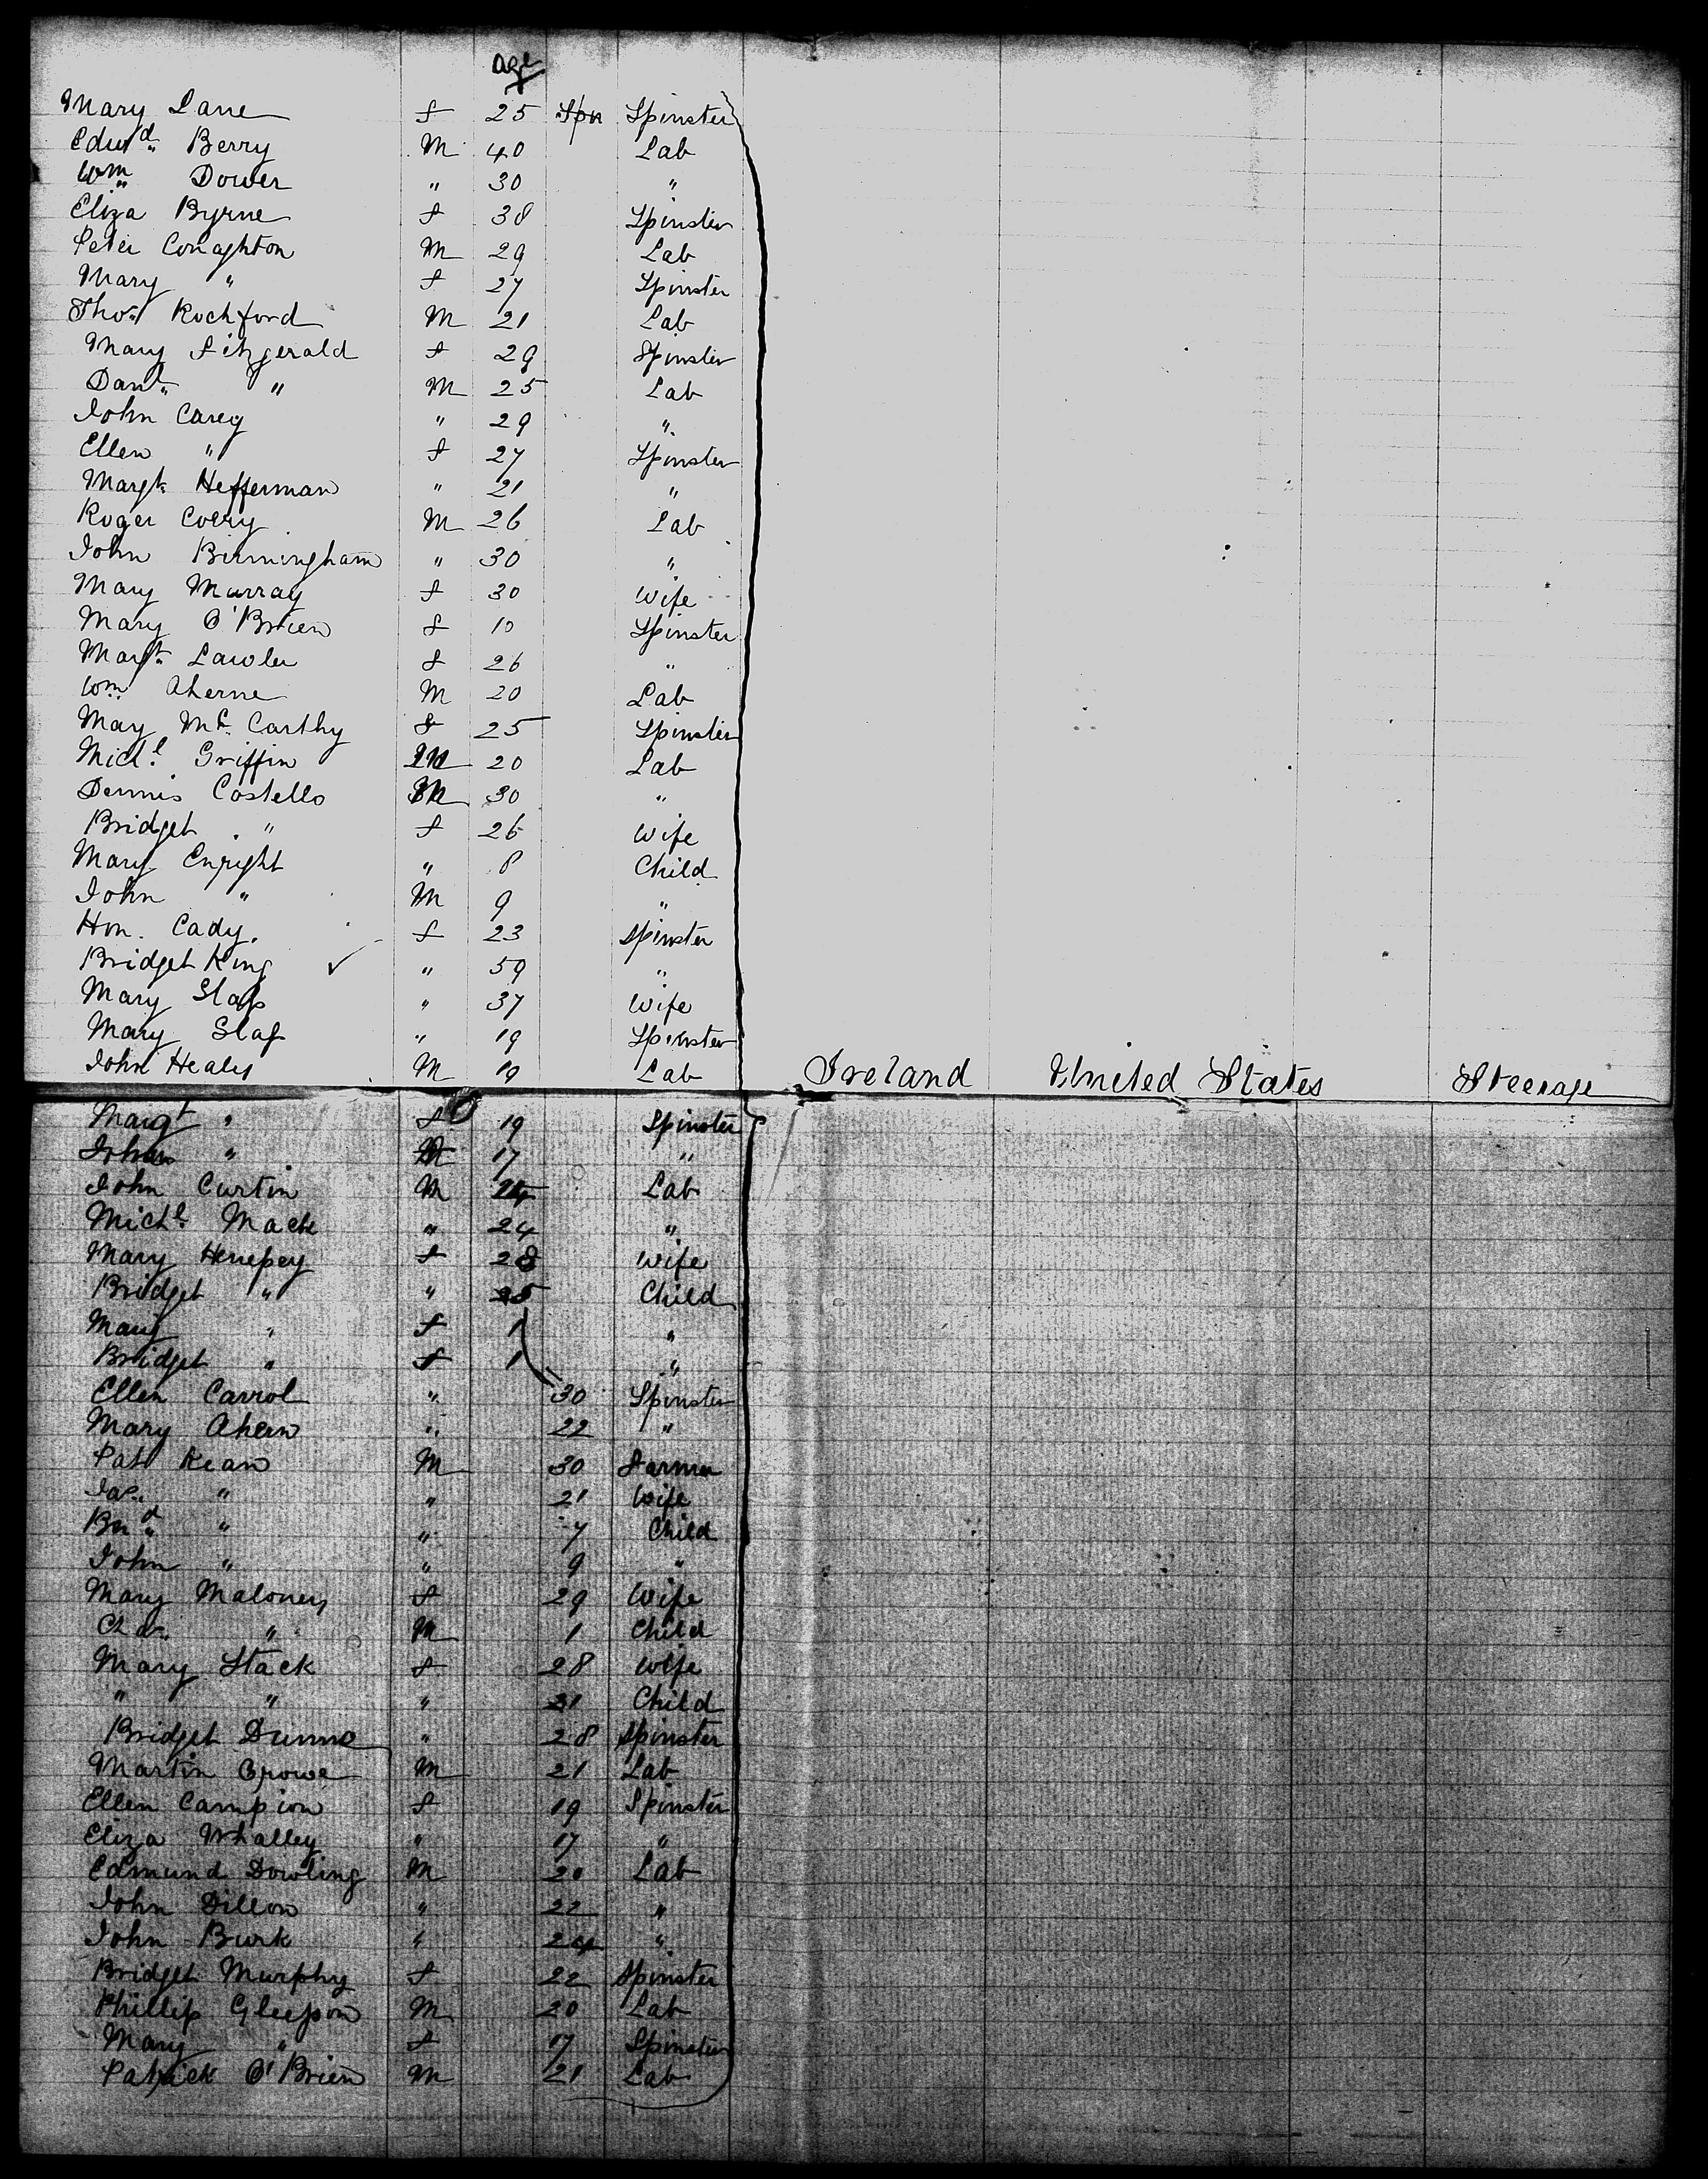 age
Mary Lane f 25 Spn Spinster
Edwd. Berry M 40 Lab
Wm Dower " 30 "
Eliza Byrne f 38 Spinster
Peter Conaghton M 29 Lab
Mary " f 27 Spinster
Thos. Rochford M 21 Lab
Mary Fitzgerald f 29 Spinster
Danl. " M 25 Lab
John Carey " 29 "
Ellen " f 27 Spinster
Margt. Hefferman " 21 "
Roger M 26 Lab
John Birmingham " 30 "
Mary Murray f 30 Wife
Mary O'Brien f 10 Spinster
Margt. Lawler f 26 "
Wm. Aherne M 20 Lab
May McCarthy f 25 Spinster
Michl. Griffin M 20 Lab
Dennis Costello M 30 "
Bridget " f 26 Wife
Mary Enright " 8 Child
John " M 9 "
Hon. Cady. f 23 Spinster
Bridget King ✓ " 59 "
Mary " 37 Wife
Mary " 19 Spinster
John Healy M 19 Lab Ireland United States Steerage
Margt " f 19 Spinster
" 17 "
John Curtin M Lab
Michl. Mack " 24 "
Mary f 28 Wife
Bridget " " Child
Mary " f 1 "
Bridget " f 1 "
Ellen Carrol " 30 Spinster
Mary Ahern " 22 "
Pat Kean M 30 Farmer
Jas. " " 21 Wife
" " 7 Child
John " " 9 "
Mary Maloney f 29 Wife
" M 1 Child
Mary Stack f 28 Wife
" " " Child
Bridget Dunne " 28 Spinster
Martin Crowe M 21 Lab
Ellen Campion f 19 Spinster
Eliza Whalley " 17 "
Edmund Dowling M 20 Lab
John Dillon " 22 "
John Burk " 24 "
Bridget Murphy f 22 Spinster
Phillip Gleeson M 20 Lab
Mary " f 17 Spinster
Patrick O'Brien M 21 Lab